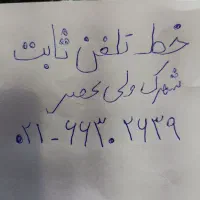 خط تلفن ثابت
شهرک ولی عصر
۰۲۱-۶۶۳۰۲۶۳۹